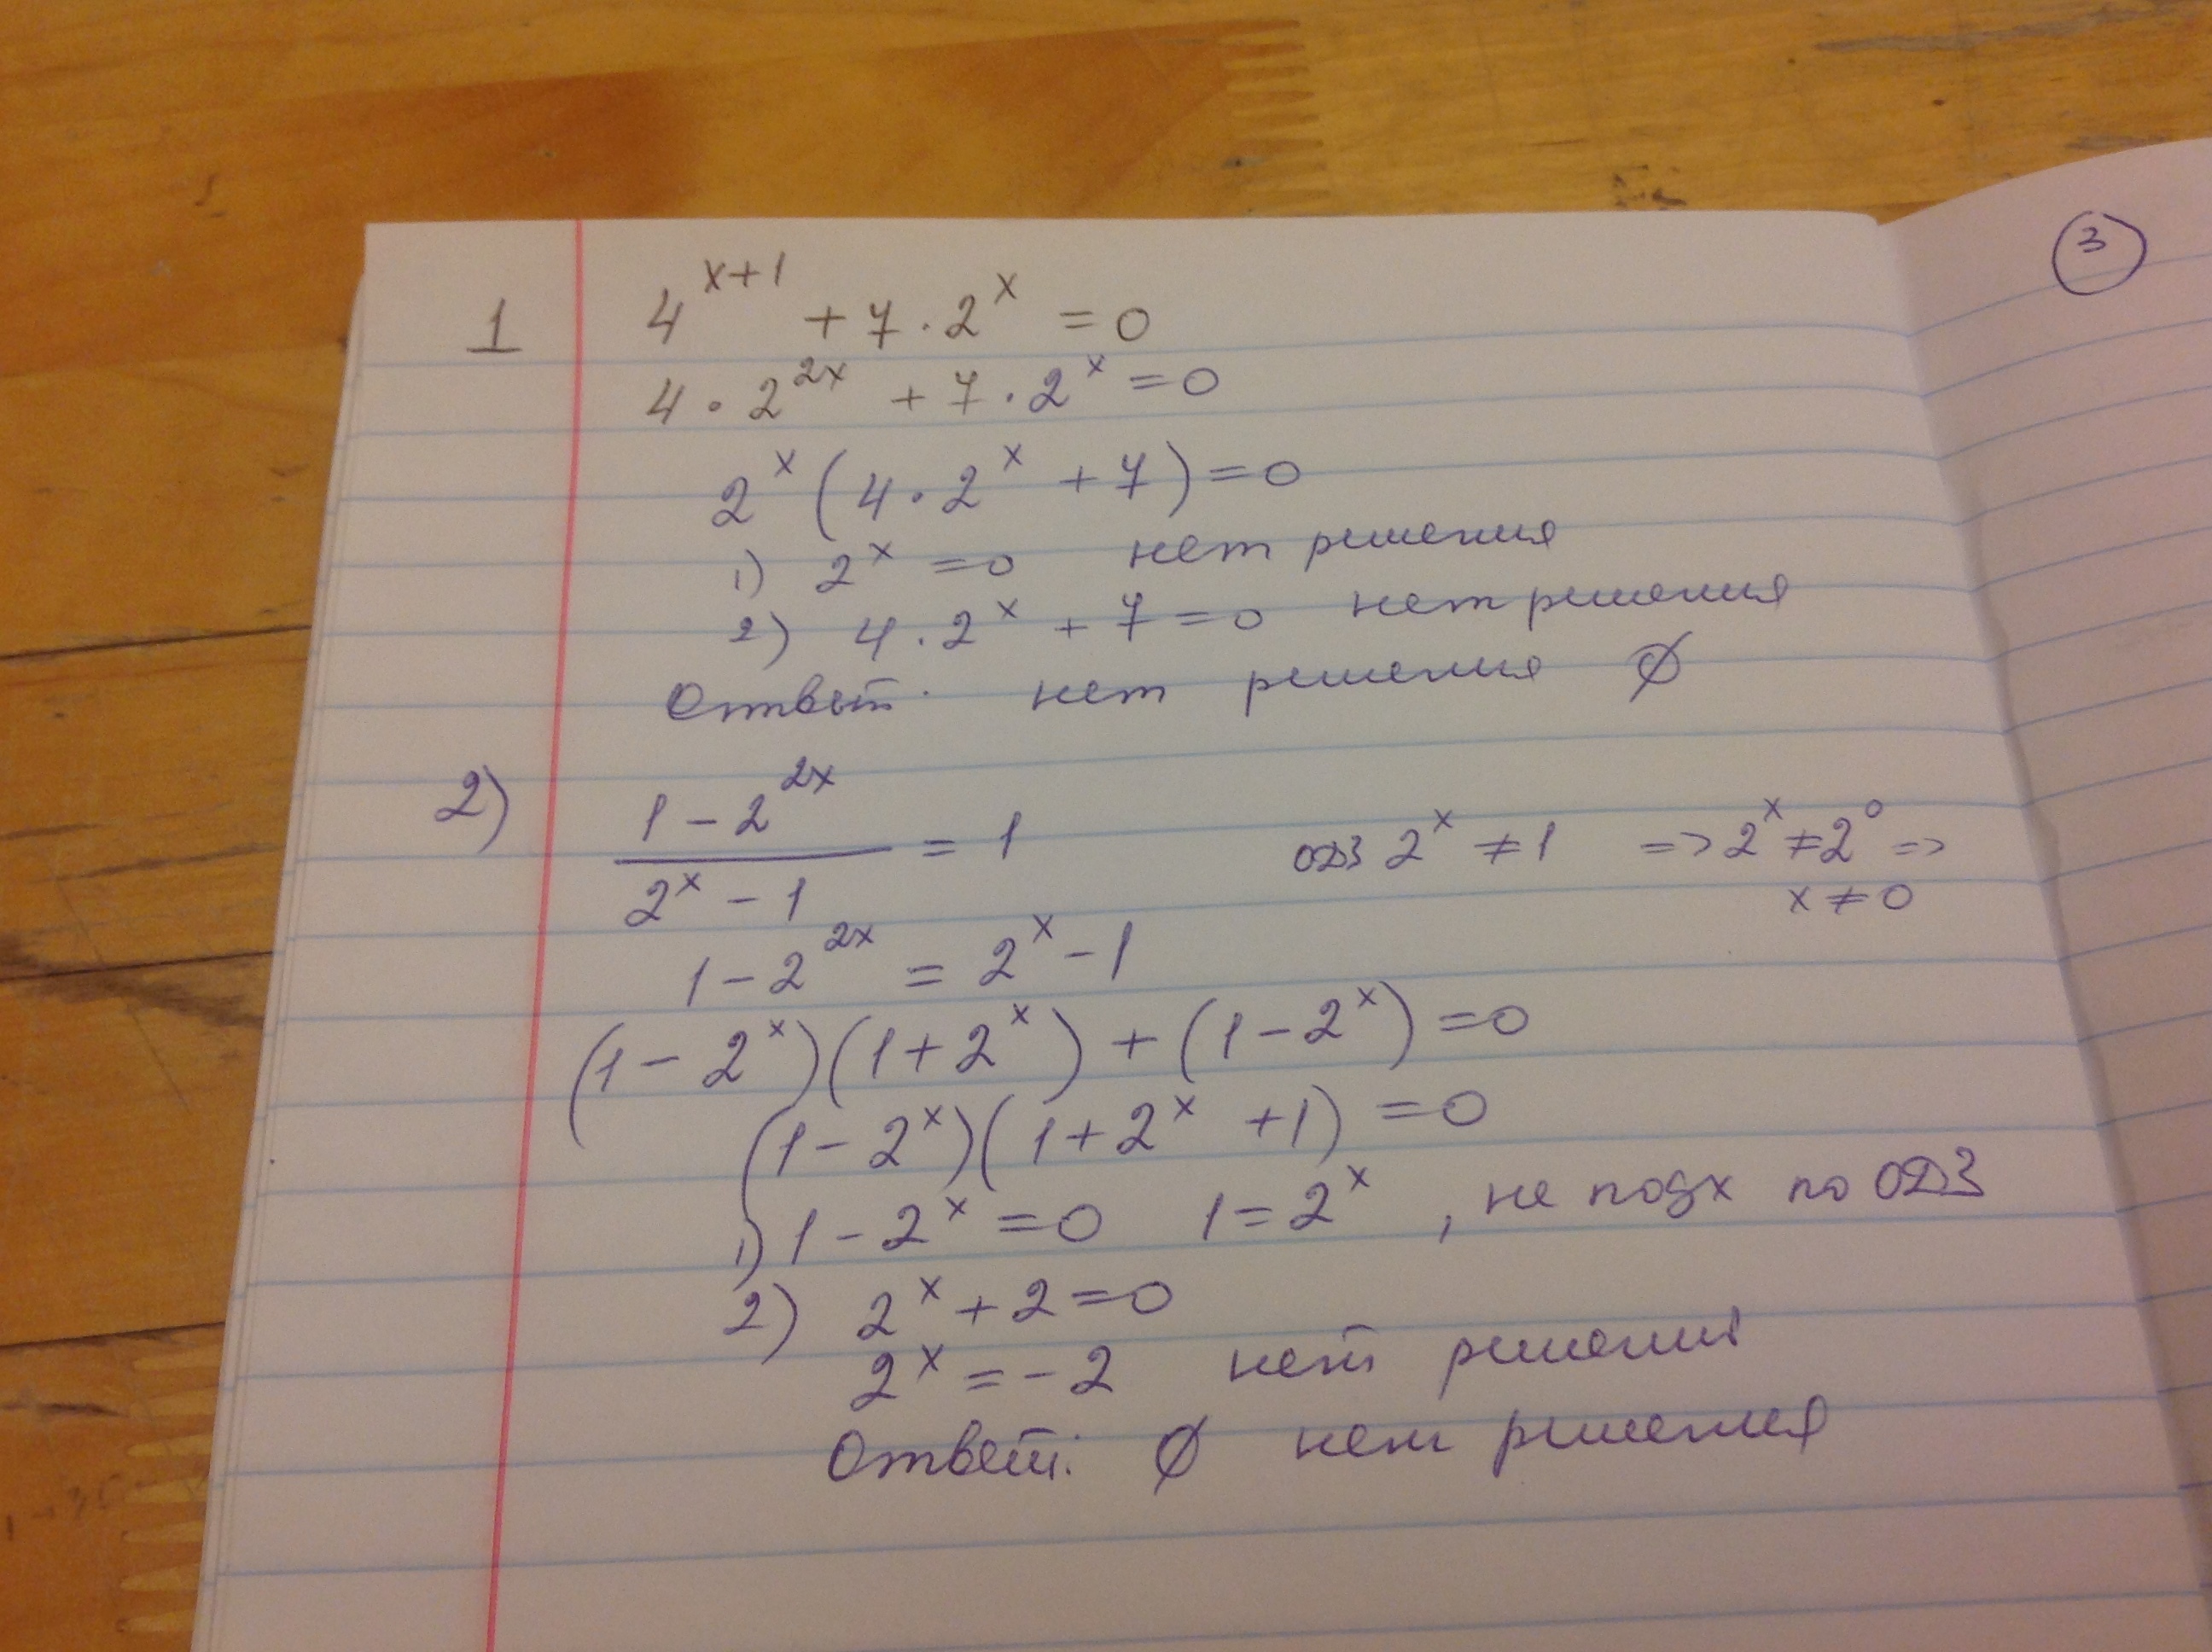 3
1 4^{x+1} + 7 · 2^x = 0
4 · 2^{2x} + 7 · 2^x = 0
2^x (4 · 2^x + 7) = 0
1) 2^x = 0 нет решения
2) 4 · 2^x + 7 = 0 нет решения
Ответ: нет решения ∅
2) \frac{1 - 2^{2x}}{2^x - 1} = 1 ОДЗ 2^x ≠ 1 => 2^x ≠ 2^0 =>
x ≠ 0
1 - 2^{2x} = 2^x - 1
(1 - 2^x)(1 + 2^x) + (1 - 2^x) = 0
(1 - 2^x)(1 + 2^x + 1) = 0
1) 1 - 2^x = 0 1 = 2^x , не подх по ОДЗ
2) 2^x + 2 = 0
2^x = - 2 нет решения
Ответ: ∅ нет решения